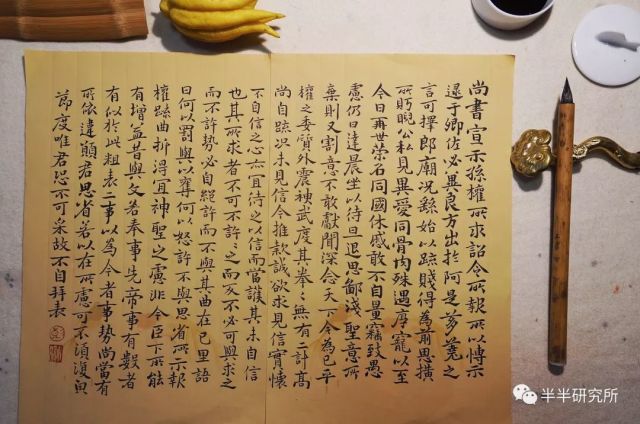 尚書宣示孫權所求詔令所報所以博示
逮于卿佐必異良方出於阿是芻蕘之
言可擇郎廟況繇始以疏賤得為前恩橫
所睨公私見異愛同骨肉殊遇厚寵以至
今日再世榮名同國休慼敢不自量竊致愚
慮仍日達晨坐以待旦退思鄙淺聖意所
棄則又割意不敢獻聞深念天下今為已平
權之委質外震神武度其拳〻無有二計高
尚自疏況未見信今推款誠欲求見信實懷
不自信之心亦宜待之以信而當護其未自信
也其所求者不可不許〻之而反不必可與求之
而不許勢必自絕許而不與其曲在己里語
曰何以罰與以奪何以怒許不與思省所示報
權疏曲折得宜神聖之慮非今臣下所能
有增益昔與文若奉事先帝事有數者
有似於此粗表二事以為今者事勢尚當有
所依違願君思省若以在所慮可不須復㒵
節度唯君恐不可采故不自拜表
半半研究所